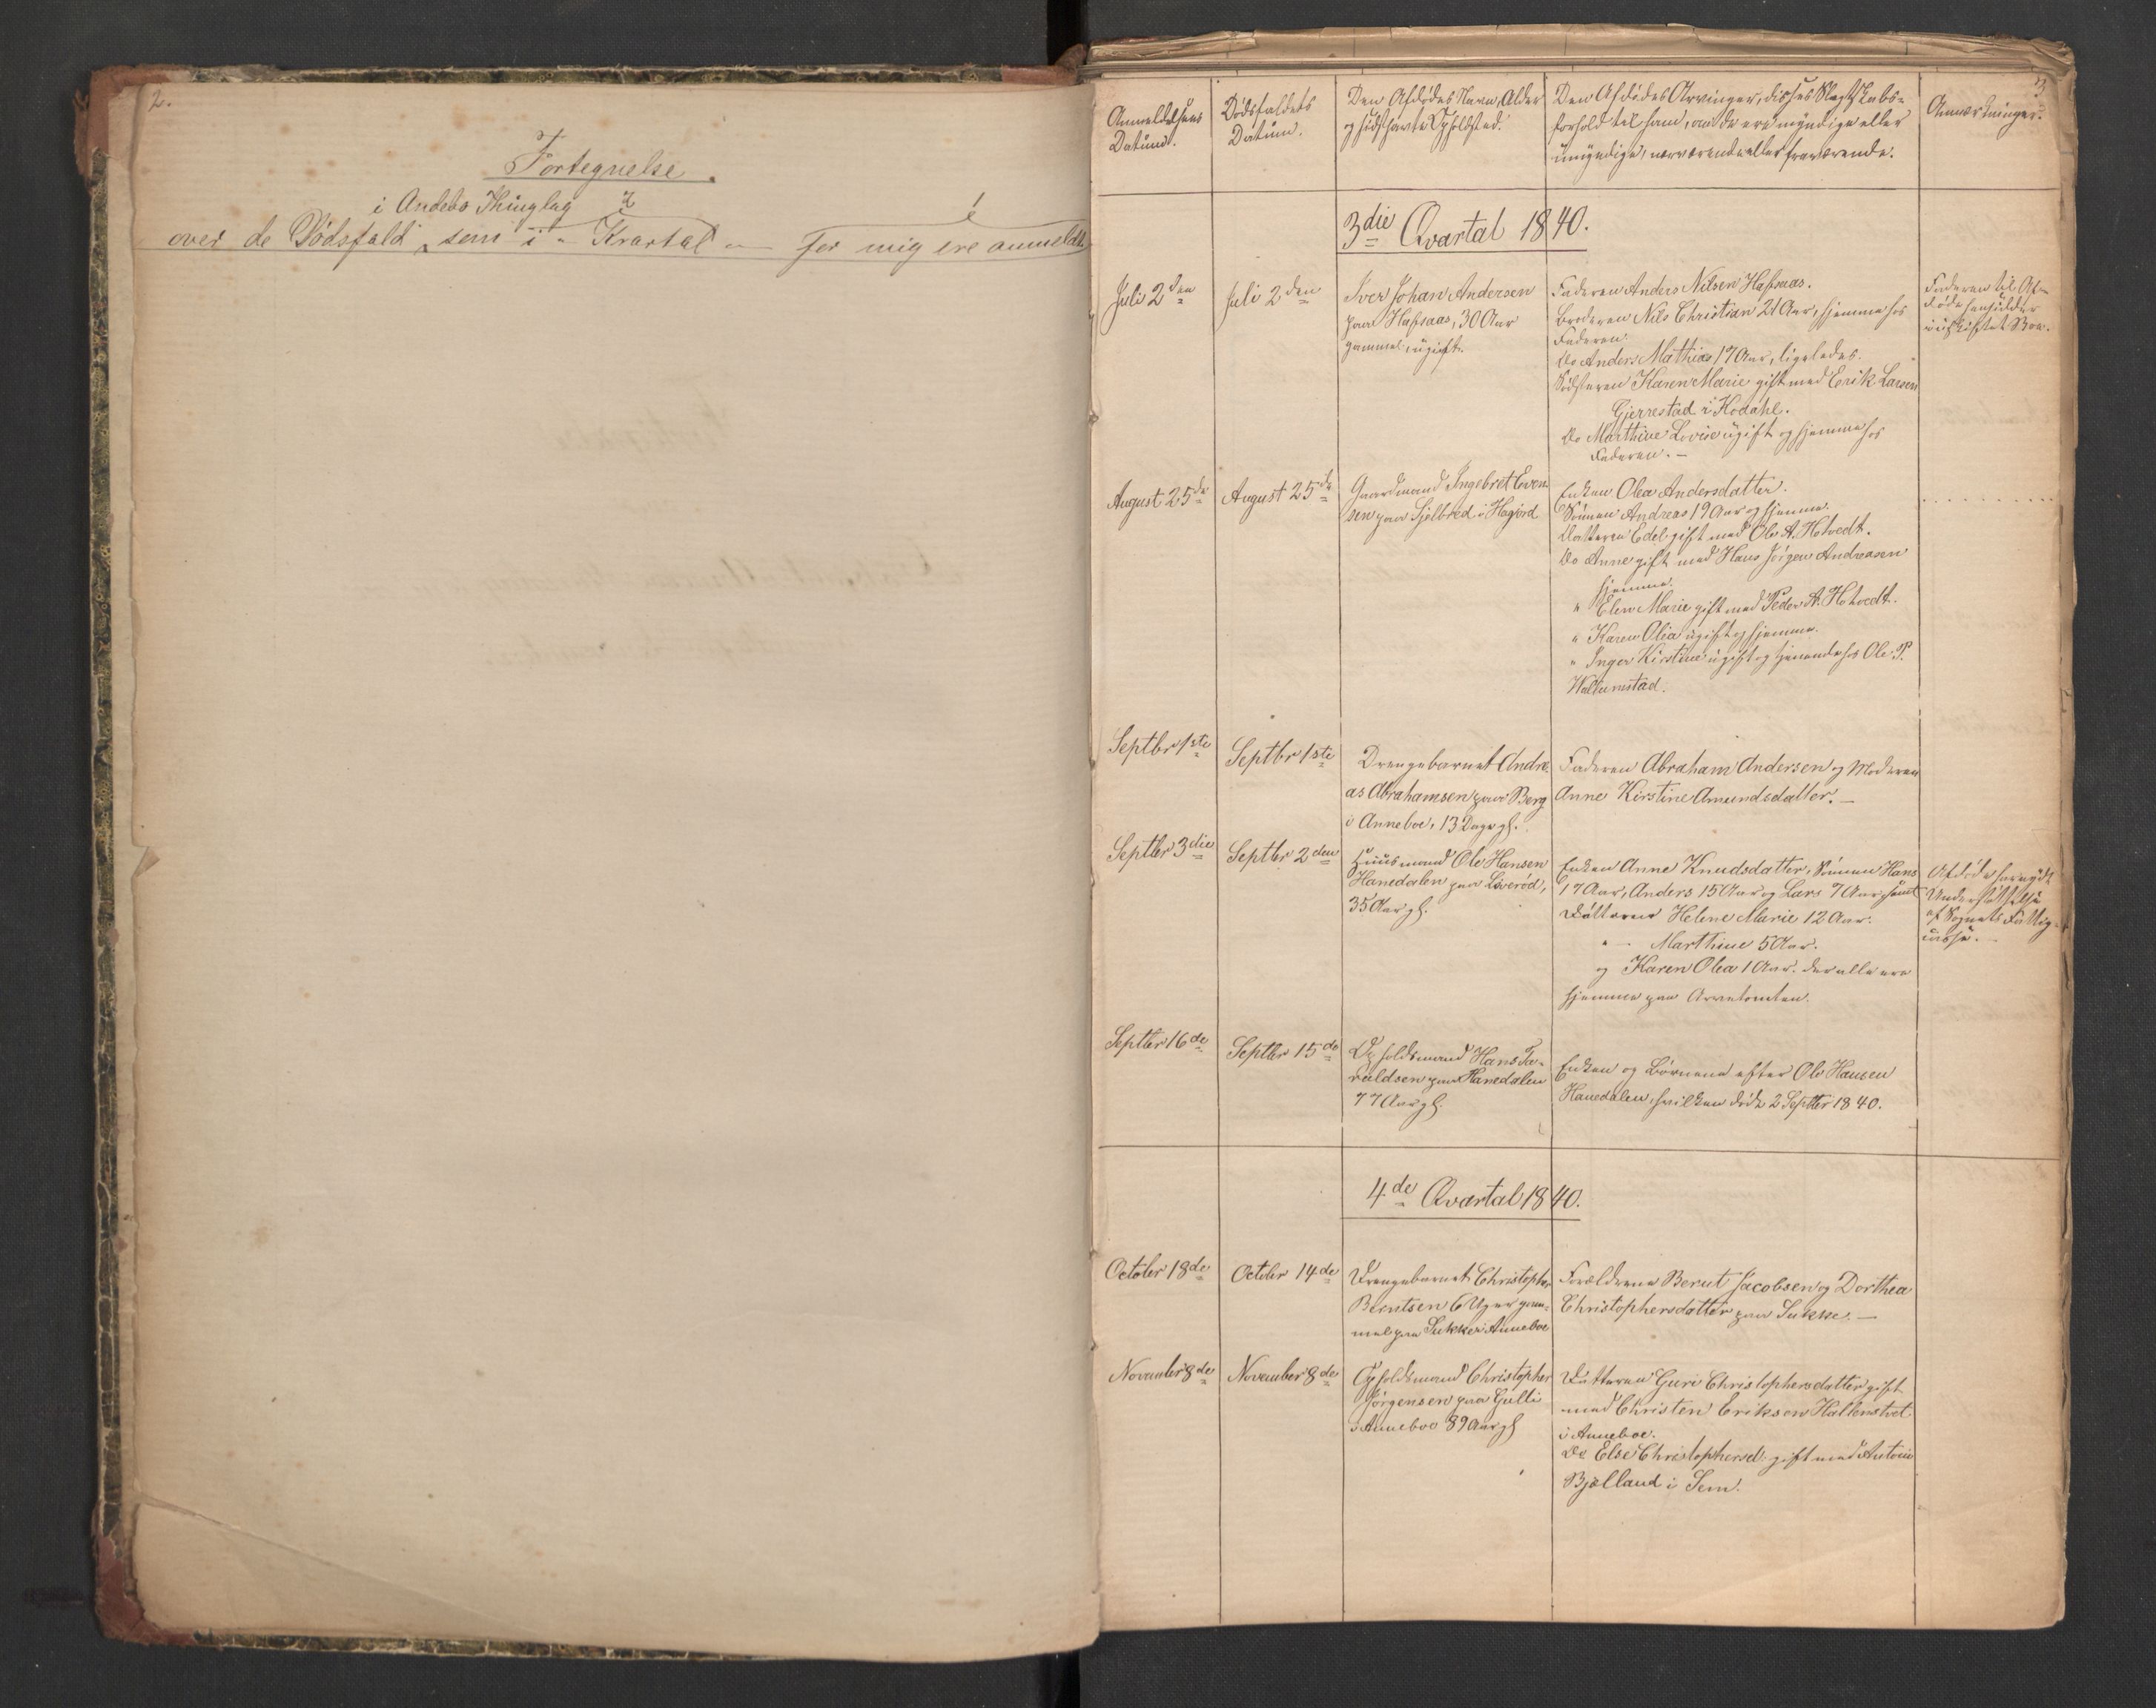 2.
Fortegnelse.
i Andebo Thinglag
over de Dødsfald, som i - Kvartal - for mig ere anmeldte
3
Anmeldelsens
Datum.
Dødsfaldets
Datum.
Den Afdødes Navn, Alder
og sidsthavte Opholdsted.
Den Afdødes Arvinger, disses Slægtskabs-
forhold til ham, om de ere myndige eller
umyndige, nærværende eller fraværende.
Anmærkninger.
3die Qvartal 1840.
Juli 2den
Juli 2den
Iver Johan Andersen
paa Hafsaas, 30 Aar
gammel, ugift.
Faderen Anders Nilsen Hafsaas.
Broderen Nils Christian 21 Aar, hjemme hos
Faderen.
Do Anders Mathias 17 Aar, ligeledes.
Södsteren Karen Marie gift med Erik Larsen
Gjerrestad i Kodahl.
Do Marthine Lovise ugift og hjemme hos
Faderen. -
Faderen til Af-
døde hensidder
i uskiftet Boe.
August 25de
August 25de
Gaardmand Ingebret Even
sen paa Sjølbred i Høgjord
Enken Olea Andersdatter.
Sönnen Andreas 19 Aar og hjemme.
Datteren Edel gift med Ole A. Hotvedt.
Do Anne gift med Hans Jörgen Andreasen
hjemme.
" Elen Marie gift med Peder A. Hotvedt.
" Karen Olia ugift og hjemme.
" Inger Kirstine ugift og tjenende hos Ole P.
Wallumstad.
Septbr 1ste
Septbr 1ste
Drengebarnet Andre
as Abrahamsen paa Berg
i Anneboe, 13 Dage gl.
Faderen Abraham Andersen og Moderen
Anne Kirstine Amundsdatter. -
Septbr 3die
Septbr 2den
Huusmand Ole Hansen
Hanedalen paa Löverød,
35 Aar gl.
Enken Anne Knudsdatter, Sönnen Hans
17 Aar, Anders 15 Aar og Lars 7 Aar samt
Döttrene Helene Marie 12 Aar.
" - Marthine 5 Aar.
og Karen Olea 1 Aar. der alle ere
hjemme paa Arvetomten.
Afdøde har nydt
Understøttelse
af Sognets Fattig-
casse. -
Septbr 16de
Septbr 15de
Opholdsmand Hans Ta-
raldsen paa Hanedalen
77 Aar gl.
Enken og Börnene efter Ole Hansen
Hanedalen, hvilken døde 2 Septbr 1840.
4de Qvartal 1840.
October 18de
October 14de
Drengebarnet Christopher
Berntsen 6 Uger gam-
mel paa Sukke i Anneboe
Forældrene Bernt Jacobsen og Dorthea
Christophersdatter paa Sukke. -
November 8de
November 8de
Opholdsmand Christopher
Jörgensen paa Gulli
i Anneboe 89 Aar gl
Datteren Guri Christophersdatter gift
med Christen Eriksen Hallenstvet
i Anneboe.
Do Else Christophersd. gift med Anton
Bjølland i Sem.